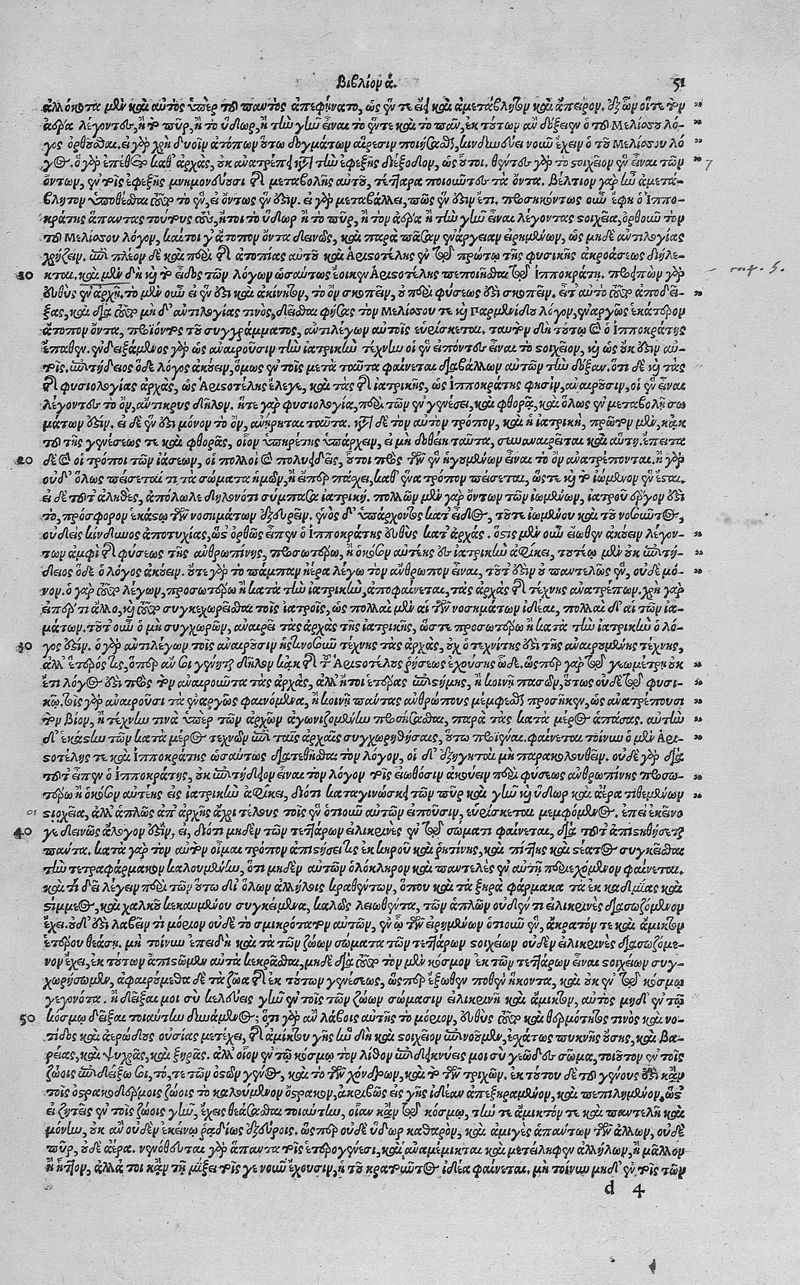 Βιβλίον ά. 51
ἀλλόκοτα μὲν καὶ αὐτὸς ὑπὲρ τοῦ παντὸς ἀπεφήνατο, ὡς ἕν τε εἴη καὶ ἀμετάβλητον καὶ ἄπειρον.
ἀέρα λέγοντες, ἢ τὸ πῦρ, ἢ τὸ ὕδωρ, ἢ τὴν γῆν εἶναι τὸ ἕν τε καὶ τὸ πᾶν, ἐκ τούτων ἂν δόξειεν ὁ τοῦ Μελίσσου λό-
γος ὀρθοῦσθαι. εἰ γὰρ χρὴ δυοῖν ἀτόπων δογμάτων αἵρεσιν ποιήσασθαι, νοῦν ἔχειν ὁ τοῦ Μελίσσου λό
γος. ὁ γὰρ κατ' ἀρχὰς, οὐκ ἀνατρέπει τὴν ἐφεξῆς διέξοδον, ὡς οὗτοι. θέντες γὰρ τὸ στοιχεῖον ἓν εἶναι τῶν 7
ὄντων, ἐν τοῖς ἐφεξῆς μνημονεύουσι τῆς μεταβολῆς αὐτοῦ, τέτταρα ποιοῦντες τὰ ὄντα. Βέλτιον γὰρ ἦν ἀμετά-
βλητον ὑποθέσθαι τὸ ἓν, εἰ ὄντως ἕν ἐστιν. εἰ γὰρ μεταβάλλει, πῶς ἕν ἐστιν ἔτι. προσηκόντως οὖν ἔφη ὁ Ἱππο-
κράτης ἅπαντας τοὺς ἢ τὸ ὕδωρ ἢ τὸ πῦρ, ἢ τὸν ἀέρα ἢ τὴν γῆν εἶναι λέγοντας στοιχεῖα, ὀρθοῦν τὸν
τοῦ Μελίσσου λόγον, καίτοι γ' ἄτοπον ὄντα δεινῶς, καὶ παρὰ πᾶσαν ἐνάργειαν εἰρημένον, ὡς μηδὲ ἀντιλογίας
χρῄζειν. ἐπὶ πλέον δὲ καὶ περὶ τῆς ἀτοπίας αὐτοῦ καὶ Ἀριστοτέλης ἐν τῷ πρώτῳ τῆς φυσικῆς ἀκροάσεως διείλε-
10 κται. καὶ μὲν δὴ καὶ τὸ εἶδος τῶν λόγων ὡσαύτως ἔοικεν Ἀριστοτέλης πεποιῆσθαι τῷ Ἱπποκράτῃ.
εὐθὺς ἐν ἀρχῇ. τὸ μὲν οὖν εἰ ἓν καὶ ἀκίνητον, τὸ ὂν σκοπεῖν, οὐ περὶ φύσεώς ἐστι σκοπεῖν.
ξας, καὶ μηδ' ἀντιλογίας τινὸς, δεῖσθαι φήσας τὸν Μελίσσου τε καὶ Παρμενίδου λόγον, ἐναργῶς ἑκάτερον
ἄτοπον ὄντα, προϊόντος τοῦ συγγράμματος, ἀντιλέγων αὐτοῖς εὑρίσκεται. ταυτὸν δὴ τοῦτο καὶ ὁ Ἱπποκράτης
ἔπαθεν. ἐνδειξάμενος γὰρ ὡς ἀναιροῦσιν τὴν ἰατρικὴν τέχνην οἱ ἓν εἰπόντες εἶναι τὸ στοιχεῖον, καὶ ὡς οὐκ ἔστιν αὐ-
τοῖς. ἐπιτήδειος ὅδε λόγος ἀκούειν, ὅμως ἐν τοῖς μετὰ ταῦτα φαίνεται διαβάλλων αὐτῶν τὴν δόξαν. ὅτι δὲ καὶ τὰς
τῆς φυσιολογίας ἀρχὰς, ὡς Ἀριστοτέλης ἔλεγε, καὶ τὰς τῆς ἰατρικῆς, ὡς Ἱπποκράτης φησὶν, ἀναιροῦσιν, οἱ ἓν εἶναι
λέγοντες τὸ ὂν, ἄντικρυς δῆλον. ἥτε γὰρ φυσιολογία, περὶ τῶν ἐν γενέσει, καὶ φθορᾷ, καὶ ὅλως ἐν μεταβολῇ σω
μάτων ἐστὶν, εἰ δὲ ἕν ἐστι μόνον τὸ ὂν, ἀνῄρηται ταῦτα. κατὰ δὲ τὸν αὐτὸν τρόπον, καὶ ἡ ἰατρικὴ, πρῶτον μὲν, κἀκ
τοῦ τῆς γενέσεώς τε καὶ φθορᾶς, οἷον ὑπηρέτης ὑπάρχειν, εἰ μὴ δοθείη ταῦτα, συναναιρεῖται καὶ αὕτη. ἔπειτα
20 δὲ καὶ οἱ τρόποι τῶν ἰάσεων, οἱ πολλοὶ καὶ πολυειδεῖς, ὑπὸ τῶν ἓν ἡγουμένων εἶναι τὸ ὂν ἀνατρέπονται. ἢ γὰρ
οὐδ' ὅλως πείσεταί τι τὰ σώματα ἡμῶν, ἢ εἴπερ πάσχει, καθ' ἕνα τρόπον πείσεται, ὥστε καὶ τὸ ἰώμενον ἓν ἔσται.
εἰ δὲ τοῦτ' ἀληθὲς, ἀπόλωλε δηλονότι σύμπασα ἰατρική. πολλῶν μὲν γὰρ ὄντων τῶν ἰωμένων, ἰατροῦ ἔργον ἐστὶ
τὸ, πρόσφορον ἑκάστῳ τῶν νοσημάτων ἐξευρεῖν. ἑνὸς δ' ὑπάρχοντος κατ' εἶδος, τοῦ τε ἰωμένου καὶ τοῦ νοσοῦντος,
οὐδεὶς κίνδυνος ἀποτυχίας, ὡς ὀρθῶς εἶπεν ὁ Ἱπποκράτης εὐθὺς κατ' ἀρχάς. ὅστις μὲν οὖν εἴωθεν ἀκούειν λεγόν-
των ἀμφὶ τῆς φύσεως τῆς ἀνθρωπίνης, προσωτέρω, ἢ ὁκόσον αὐτέης ἐς ἰατρικὴν ἀφίκει, τουτέῳ μὲν οὐκ ἐπιτή-
δειος ὅδε ὁ λόγος ἀκούειν. οὔτε γὰρ τὸ πάμπαν ἠέρα λέγω τὸν ἄνθρωπον εἶναι, τοῦτ' ἔστιν ὁ παντελῶς ἓν, οὐδὲ μό-
νον. ὁ γὰρ λέγων, προσωτέρω ἢ κατὰ τὴν ἰατρικὴν, ἀποφαίνεται, τὰς ἀρχὰς τῆς τέχνης ἀνατρέπων. χρὴ γὰρ
εἴπερ τι ἄλλο, καὶ συγκεχωρεῖσθαι τοῖς ἰατροῖς, ὡς πολλαὶ μὲν αἱ τῶν νοσημάτων ἰδέαι, πολλαὶ δ' αἱ τῶν ἰα-
μάτων. τοῦτ' οὖν ὁ μὴ συγχωρῶν, ἀναιρεῖ τὰς ἀρχὰς τῆς ἰατρικῆς, ὥστε προσωτέρω ἢ κατὰ τὴν ἰατρικὴν ὁ λό-
30 γος ἐστίν. ὁ γὰρ ἀντιλέγων τοῖς ἀναιροῦσιν ἡστινοσοῦν τέχνης τὰς ἀρχὰς, οὐχ ὁ τεχνίτης ἐστὶ τῆς ἀναιρουμένης τέχνης,
ἀλλ' ἕτερός τις, ὅπερ ἂν σοι γένοιτο δῆλον κἀκ τῆς τοῦ Ἀριστοτέλους ῥήσεως ἐχούσης ὧδε, ὥσπερ γὰρ τῷ γεωμέτρῃ οὐκ
ἔτι λόγος ἐστὶ πρὸς τὸν ἀναιροῦντα τὰς ἀρχὰς, ἀλλ' ἤτοι ἑτέρας ἐπιστήμης, ἢ κοινῆ πασῶν, οὕτως οὐδὲ τῷ φυσι-
κῷ. τοῖς γὰρ ἀναιροῦσι τὰ ἐναργῶς φαινόμενα, ἢ κοινῇ πάντας ἀνθρώπους μέμφεσθαι προσῆκεν, ὡς ἀνατρέπουσι
τὸν βίον, ἢ τέχνην τινὰ ὑπὲρ τῶν ἀρχῶν ἀγωνιζομένην προστήσασθαι, παρὰ τὰς κατὰ μέρος ἁπάσας. αὐτὴν
δ' ἑκάστην τῶν κατὰ μέρος τεχνῶν ἐπὶ ταῖς ἀρχαῖς συγχωρηθείσαις, οὕτω προϊέναι. φαίνεται τοίνυν ὁ μὲν Ἀρι-
στοτέλης τε καὶ Ἱπποκράτης ὡσαύτως διατεθεῖσθαι τὸν λόγον, οἱ δ' ἐξηγηταὶ μὴ παρακολουθεῖν. οὐδὲ γὰρ διὰ
τοῦτ' εἶπεν ὁ Ἱπποκράτης, οὐκ ἐπιτήδειον εἶναι τὸν λόγον τοῖς εἰωθόσιν ἀκούειν περὶ φύσεως ἀνθρωπίνης προσω-
τέρω ἢ ὁκόσον αὐτέης εἰς ἰατρικὴν ἀφίκει, διότι καταγινώσκει τῶν πῦρ καὶ γῆν καὶ ὕδωρ καὶ ἀέρα τιθεμένων
στοιχεῖα, ἀλλ' ἁπλῶς ἀπ' ἀρχῆς ἄχρι τέλους τοῖς ἓν ὁτιοῦν αὐτῶν εἰποῦσιν, εὑρίσκεται μεμφόμενος. ἐπεὶ ἐκεῖνό
40 γε δεινῶς ἄλογόν ἐστιν, εἰ, διότι μηδὲν τῶν τεττάρων εἰλικρινὲς ἐν τῷ σώματι φαίνεται, διὰ τοῦτ' ἀπιστήσει
πάντα. κατὰ γὰρ τὸν αὐτὸν οἶμαι τρόπον ἀπιστήσεις ἐκ κηροῦ καὶ ῥητίνης, καὶ πίττης καὶ στέατος συγκεῖσθαι
τὴν τετραφάρμακον καλουμένην, ὅτι μηδὲν αὐτῶν ὁλόκληρον καὶ παντελὲς ἐν αὐτῇ περιεχόμενον φαίνεται.
καὶ τί δεῖ λέγειν περὶ τῶν οὕτω δι' ὅλων ἀλλήλοις κραθέντων, ὅπου καὶ τὰ ξηρὰ φάρμακα τὰ ἐκ καδμίας καὶ
στίμμεως, καὶ χαλκοῦ κεκαυμένου συγκείμενα, καλῶς λειωθέντα, τῶν ἁπλῶν οὐδέν τι εἰλικρινὲς διασωζόμενον
ἔχει. οὐδ' ἔστι λαβεῖν τι μόριον οὐδὲ τὸ σμικρότατον αὐτῶν, ἐν ᾧ τῶν εἰρημένων ὁτιοῦν ἓν, ἄκρατόν τε καὶ ἄμικτον
ἑτέρου θεάσῃ. μὴ τοίνυν ἐπειδὴ καὶ τὰ τῶν ζώων σώματα τῶν τεττάρων στοιχείων οὐδὲν εἰλικρινὲς διασωζόμε-
νον ἔχει, ἐκ τούτων ἀπιστῶμεν αὐτὰ κεκρᾶσθαι, μηδὲ διὰ τὸν μὲν κόσμον ἐκ τῶν τεττάρων εἶναι στοιχείων συγ-
χωρήσωμεν, ἀφαιρώμεθα δὲ τὰ ζῶα τῆς ἐκ τούτων γενέσεως, ὥσπερ ἔξωθέν ποθεν ἥκοντα, καὶ οὐκ ἐν τῷ κόσμῳ
γεγονότα. ἢ δεῖξαί μοι σὺ κελεύεις γῆν ἐν τοῖς τῶν ζώων σώμασιν εἰλικρινῆ καὶ ἄμικτον, αὐτὸς μηδ' ἐν τῷ
50 κόσμῳ δεῖξαι τοιαύτην δυνάμενος; ὅτι γὰρ ἂν λάβοις αὐτῆς τὸ μόριον, εὐθὺς καὶ θερμότητός τινος καὶ νο-
τίδος καὶ ἀερώδους οὐσίας μετέχει, τῆς ἀμίκτου γῆς καὶ στοιχεῖον ἐπινοοῦμεν, ἐσχάτως πυκνῆς οὔσης, καὶ βα-
ρείας, καὶ ψυχρᾶς, καὶ ξηρᾶς. ἀλλ' οἷον ἐν τῷ κόσμῳ τὸν λίθον ἐπιδεικνύεις μοι γεῶδες σῶμα, τοιοῦτον ἐν τοῖς
ζώοις ἐπιδείξω σοι, τό, τε τῶν ὀστῶν γένος, καὶ τὸ τῶν χόνδρων, καὶ τὸ τῶν τριχῶν. ἐκ τούτου δὲ τοῦ γένους ἐστὶ κἀν
τοῖς ὀστρακοδέρμοις ζώοις τὸ καλούμενον ὄστρακον, ἀκριβῶς εἰς γῆς ἰδέαν ἀπεξηραμμένον, καὶ πεπιλημένον, ὥστ'
εἰ ζητεῖς ἐν τοῖς ζώοις γῆν, ἔχεις θεάσασθαι τοιαύτην, οἵαν κἀν τῷ κόσμῳ, τὴν τε ἄμικτόν τε καὶ παντελῆ καὶ
μόνην, οὐκ ἂν οὐδ' ἐν ἐκείνῳ ῥᾳδίως ἐξεύροις. ὥσπερ οὐδὲ ὕδωρ καθαρὸν, καὶ ἀμιγὲς ἁπάντων τῶν ἄλλων, οὐδὲ
πῦρ, οὐδὲ ἀέρα. νενόθευται γὰρ ἅπαντα τοῖς ἑτερογενέσι, καὶ ἀναμέμικται καὶ μετείληφεν ἀλλήλων, ἢ μᾶλλον
ἢ ἧττον, ἀλλά τοι κἀν τῇ μίξει τοῖς γε νοῦν ἔχουσιν, ἡ τοῦ κρατοῦντος ἰδέα φαίνεται. μὴ τοίνυν μηδ' ἐν τοῖς τῶν
d 4